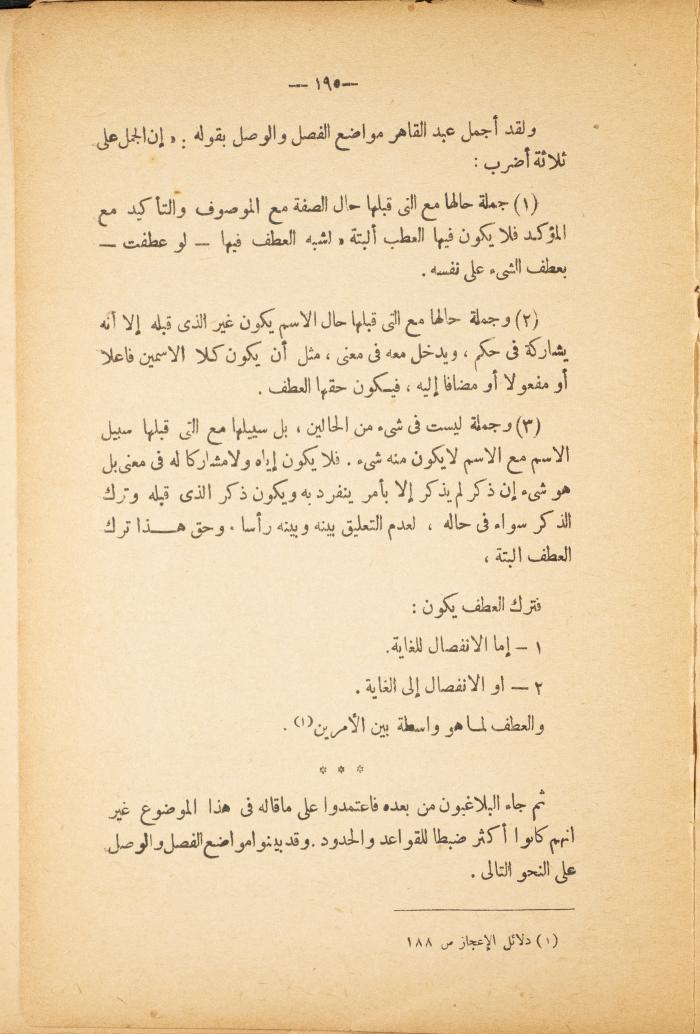 — ١٩٥ —
ولقد أجمل عبد القاهر مواضع الفصل والوصل بقوله : « إن الجمل على
ثلاثة أضرب :
(١) جملة حالها مع التى قبلها حال الصفة مع الموصوف والتأكيد مع
المؤكد فلا يكون فيها العطب ألبتة « لشبه العطف فيها — لو عطفت —
بعطف الشىء على نفسه .
(٢) وجملة حالها مع التى قبلها حال الاسم يكون غير الذى قبله إلا أنه
يشاركة فى حكم ، ويدخل معه فى معنى ، مثل أن يكون كلا الاسمين فاعلا
أو مفعولا أو مضافا إليه ، فيكون حقها العطف .
(٣) وجملة ليست فى شىء من الحالين ، بل سبيلها مع التى قبلها سبيل
الاسم مع الاسم لايكون منه شىء . فلا يكون إياه ولامشاركا له فى معنى بل
هو شىء إن ذكر لم يذكر إلا بأمر ينفرد به ويكون ذكر الذى قبله وترك
الذكر سواء فى حاله ، لعدم التعليق بينه وبينه رأسا . وحق هذا ترك
العطف البتة ،
فترك العطف يكون :
١ — إما الانفصال للغاية.
٢ — او الانفصال إلى الغاية .
والعطف لما هو واسطة بين الأمرين(١) .
* * *
ثم جاء البلاغيون من بعده فاعتمدوا على ماقاله فى هذا الموضوع غير
انهم كانوا أكثر ضبطا للقواعد والحدود .وقدبينوامواضع الفصل والوصل
على النحو التالى .
(١) دلائل الإعجاز ص ١٨٨